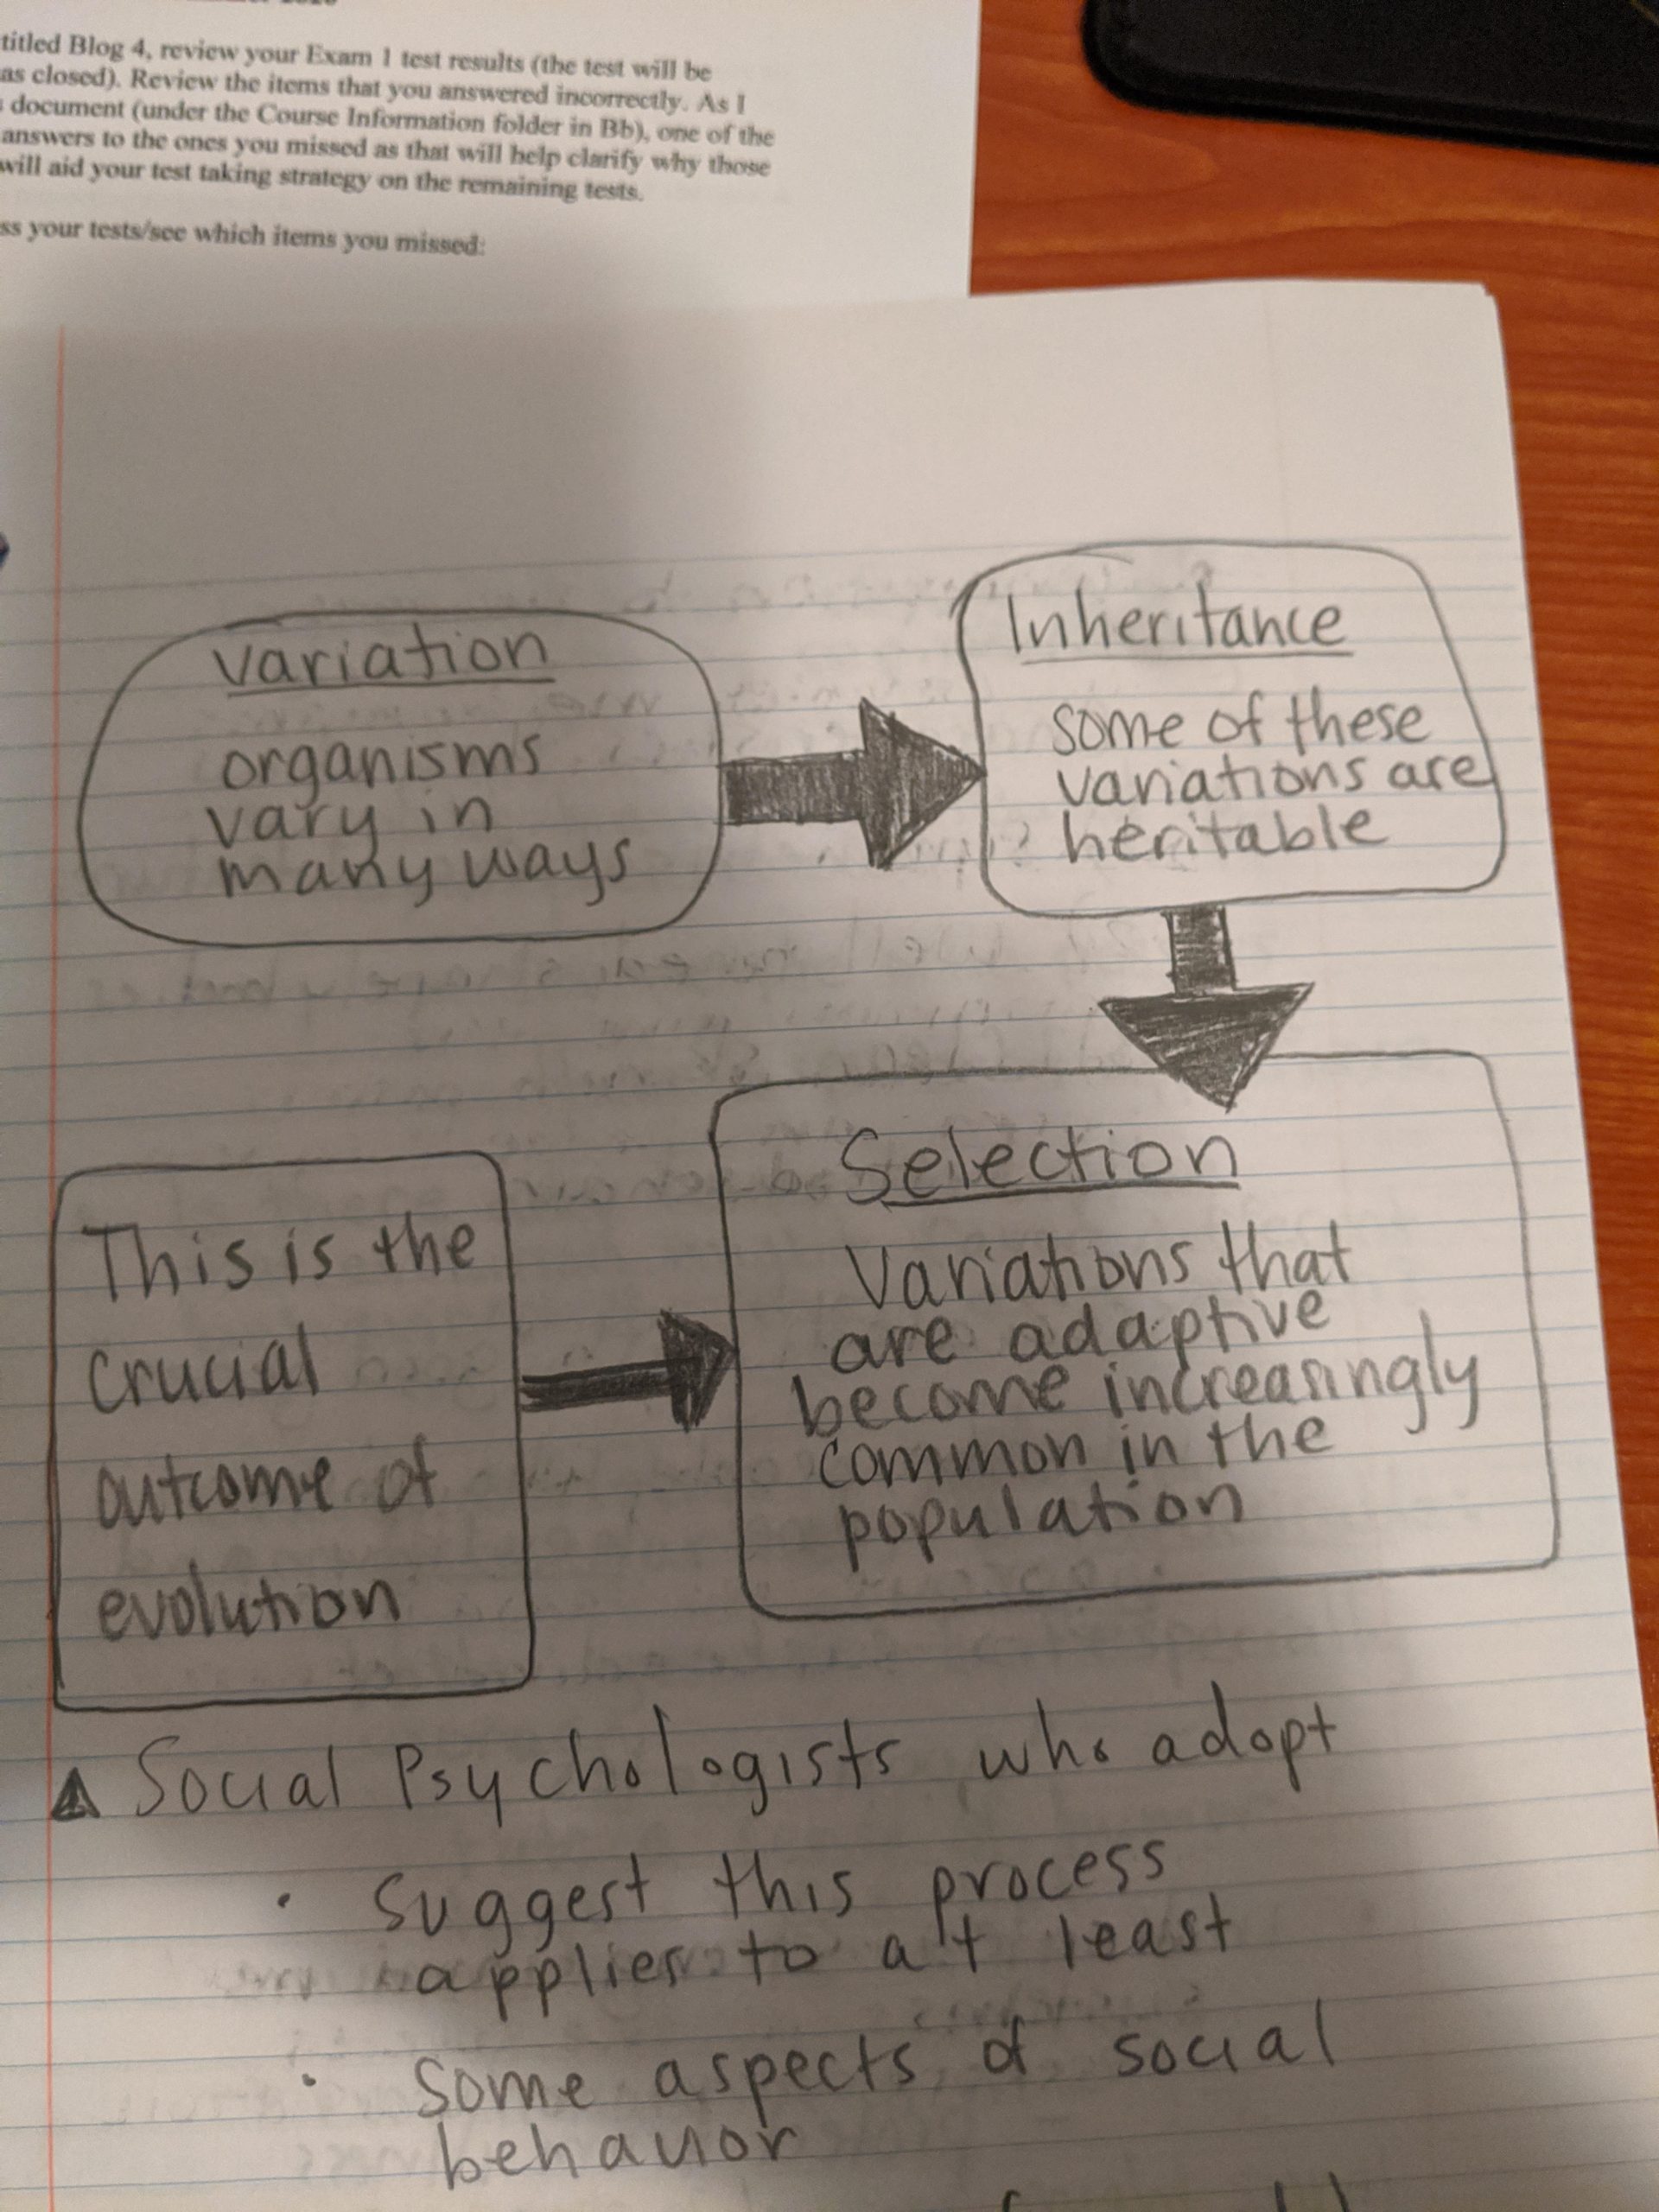 titled Blog 4, review your Exam 1 test results (the test will be
as closed). Review the items that you answered incorrectly. As I
document (under the Course Information folder in Bb), one of the
answers to the ones you missed as that will help clarify why those
will aid your test taking strategy on the remaining tests.
ss your tests/see which items you missed:
variation
organisms
vary in
many ways
Inheritance
some of these
variations are
heritable
Selection
Variations that
are adaptive
become increasingly
common in the
population
This is the
crucial
outcome of
evolution
Social Psychologists who adopt
• suggest this process
applies to at least
• some aspects of social
behavior